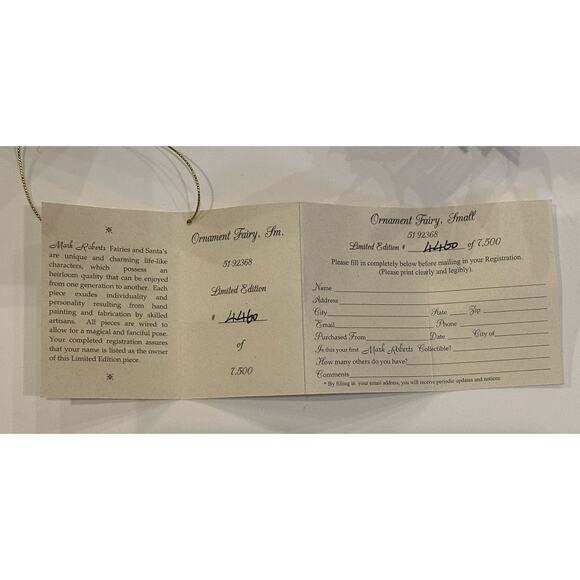 Mark Roberts Fairies and Santa's
are unique and charming life-like
characters, which possess an
heirloom quality that can be enjoyed
from one generation to another. Each
piece exudes individuality and
personality resulting from hand
painting and fabrication by skilled
artisans. All pieces are wired to
allow for a magical and fanciful pose.
Your completed registration assures
that your name is listed as the owner
of this Limited Edition piece.
Ornament Fairy, Sm.
51-92368
Limited Edition
# 4460
of
7,500
Ornament Fairy, Small
51-92368
Limited Edition # 4460 of 7,500
Please fill in completely below before mailing in your Registration.
(Please print clearly and legibly).
Name
Address
City State Zip
Email Phone
Purchased From Date City of
Is this your first Mark Roberts Collectible?
How many others do you have?
Comments
* By filling in your email address, you will receive periodic updates and notices